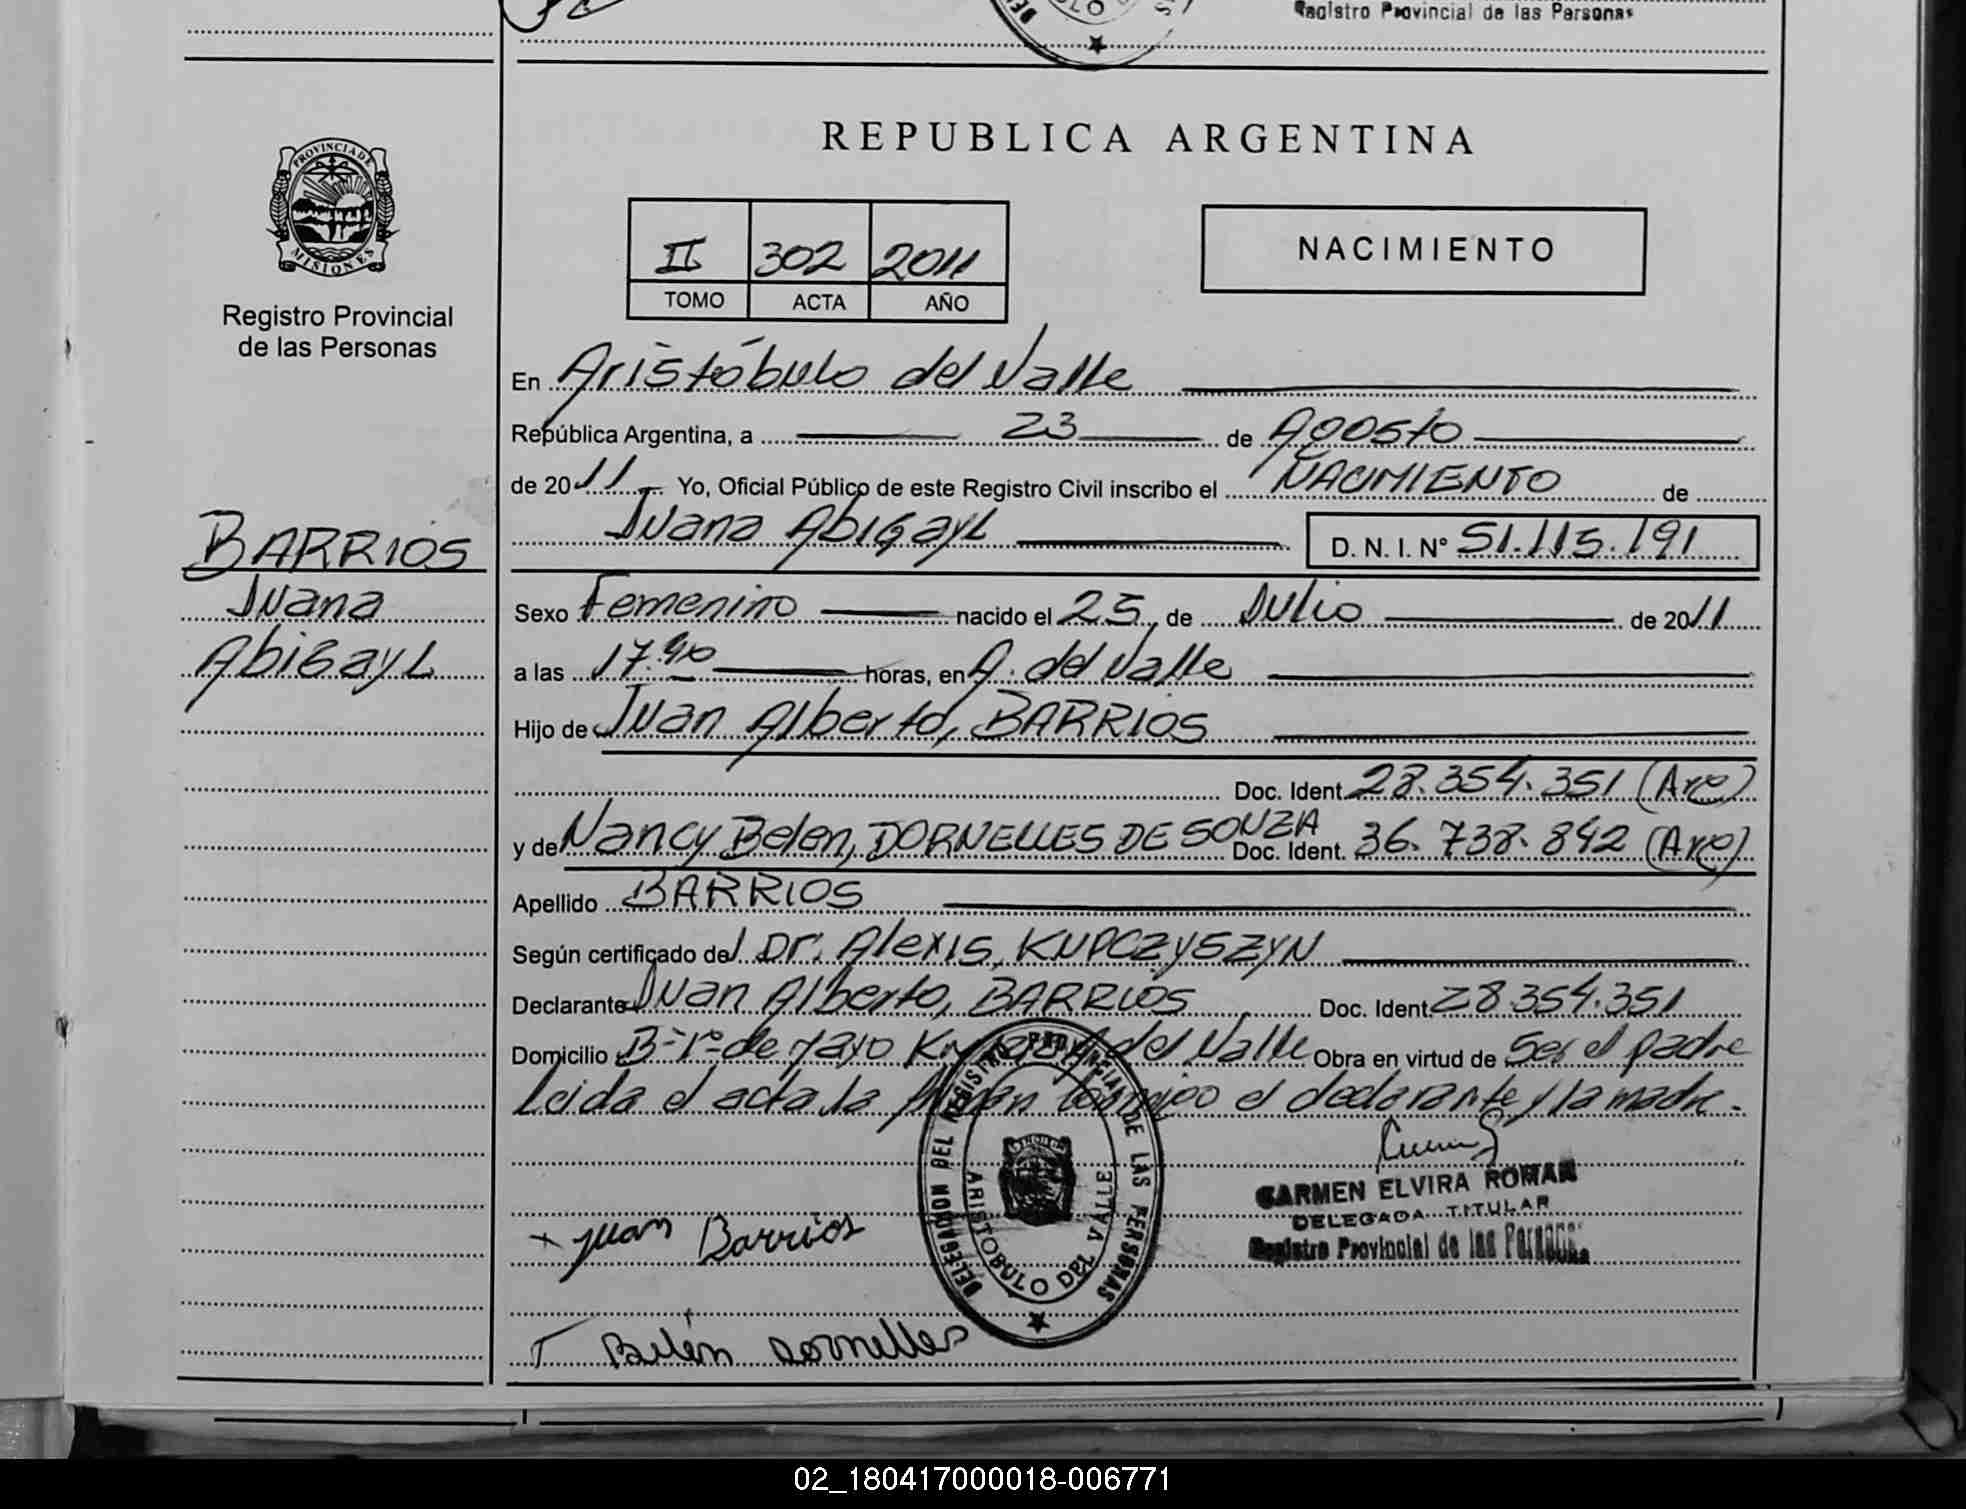 Registro Provincial de las Personas
REPUBLICA ARGENTINA
PROVINCIA DE
MISIONES
Registro Provincial
de las Personas
II 302 2011
TOMO ACTA AÑO
NACIMIENTO
En Aristóbulo del Valle
República Argentina, a 23 de Agosto
de 2011 Yo, Oficial Público de este Registro Civil inscribo el NACIMIENTO de
Juana AbigayL D. N. I. N° 51.115.191
BARRIOS
Juana
AbigayL
Sexo Femenino nacido el 25 de Julio de 2011
a las 17.40 horas, en A. del Valle
Hijo de Juan Alberto, BARRIOS
Doc. Ident. 28.354.351 (Arg)
y de Nancy Belen, DORNELLES DE SOUZA Doc. Ident. 36.738.842 (Arg)
Apellido BARRIOS
Según certificado del Dr. Alexis, KUPCZYSZYN
Declarante Juan Alberto, BARRIOS Doc. Ident. 28.354.351
Domicilio B- 1º de Mayo A del Valle Obra en virtud de Ser el padre
Leida el acta la firman conmigo el declarante y la madre.
CARMEN ELVIRA ROMAN
DELEGADA TITULAR
Registro Provincial de las Personas
Juan Barrios
DELEGACION DEL REGISTRO PROVINCIAL DE LAS PERSONAS
ARISTOBULO DEL VALLE
Belén Dornelles
02_180417000018-006771